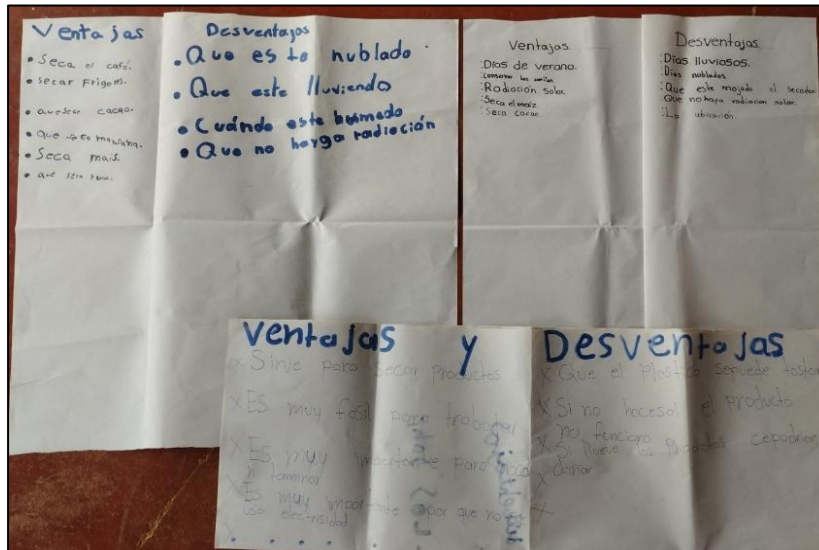 Ventajas
• Seca el café.
• secar Frigoles.
• que secar cacao.
• que seca
• Seca mais.
• que sea
Desventajas
• Que es to nublado
• Que este lluviendo
• Cuándo este humedo
• Que no hayga radioción
Ventajas.
Días de verano.
Conservar las
Radiación solar.
Seca el maíz.
Seca cacao.
Desventajas.
Días lluviosos.
Días nublados
Que este mojado el secador.
Que no haya radiacion solar.
La ubicación.
Ventajas y Desventajas
X Sirve para secar productos
X Es muy fásil para trabajar
X Es muy importante para
X Es muy importante por que no
usa electrisidad
X Que el Plastico sepuede tostar
X Si no hacesol el producto
no funciona
X Si llueve los Productos